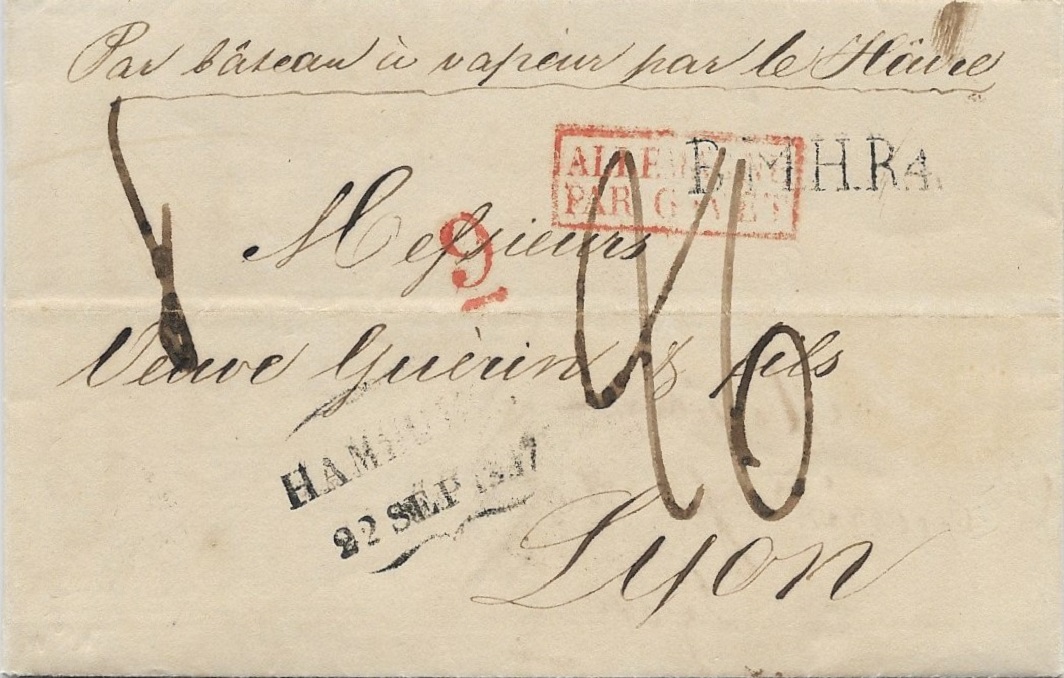 Par bâteau à vapeur par le Hâvre
ALLEMAGNE
PAR GIVET
B.M.H.R4.
Messieurs
9
Veuve Guérin & fils
HAMBURG
22 SEP 1837
Lyon